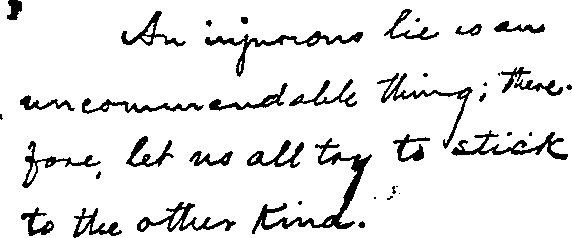 An injurious lie is an
uncommendable thing; there-
fore, let us all try to stick
to the other kind.